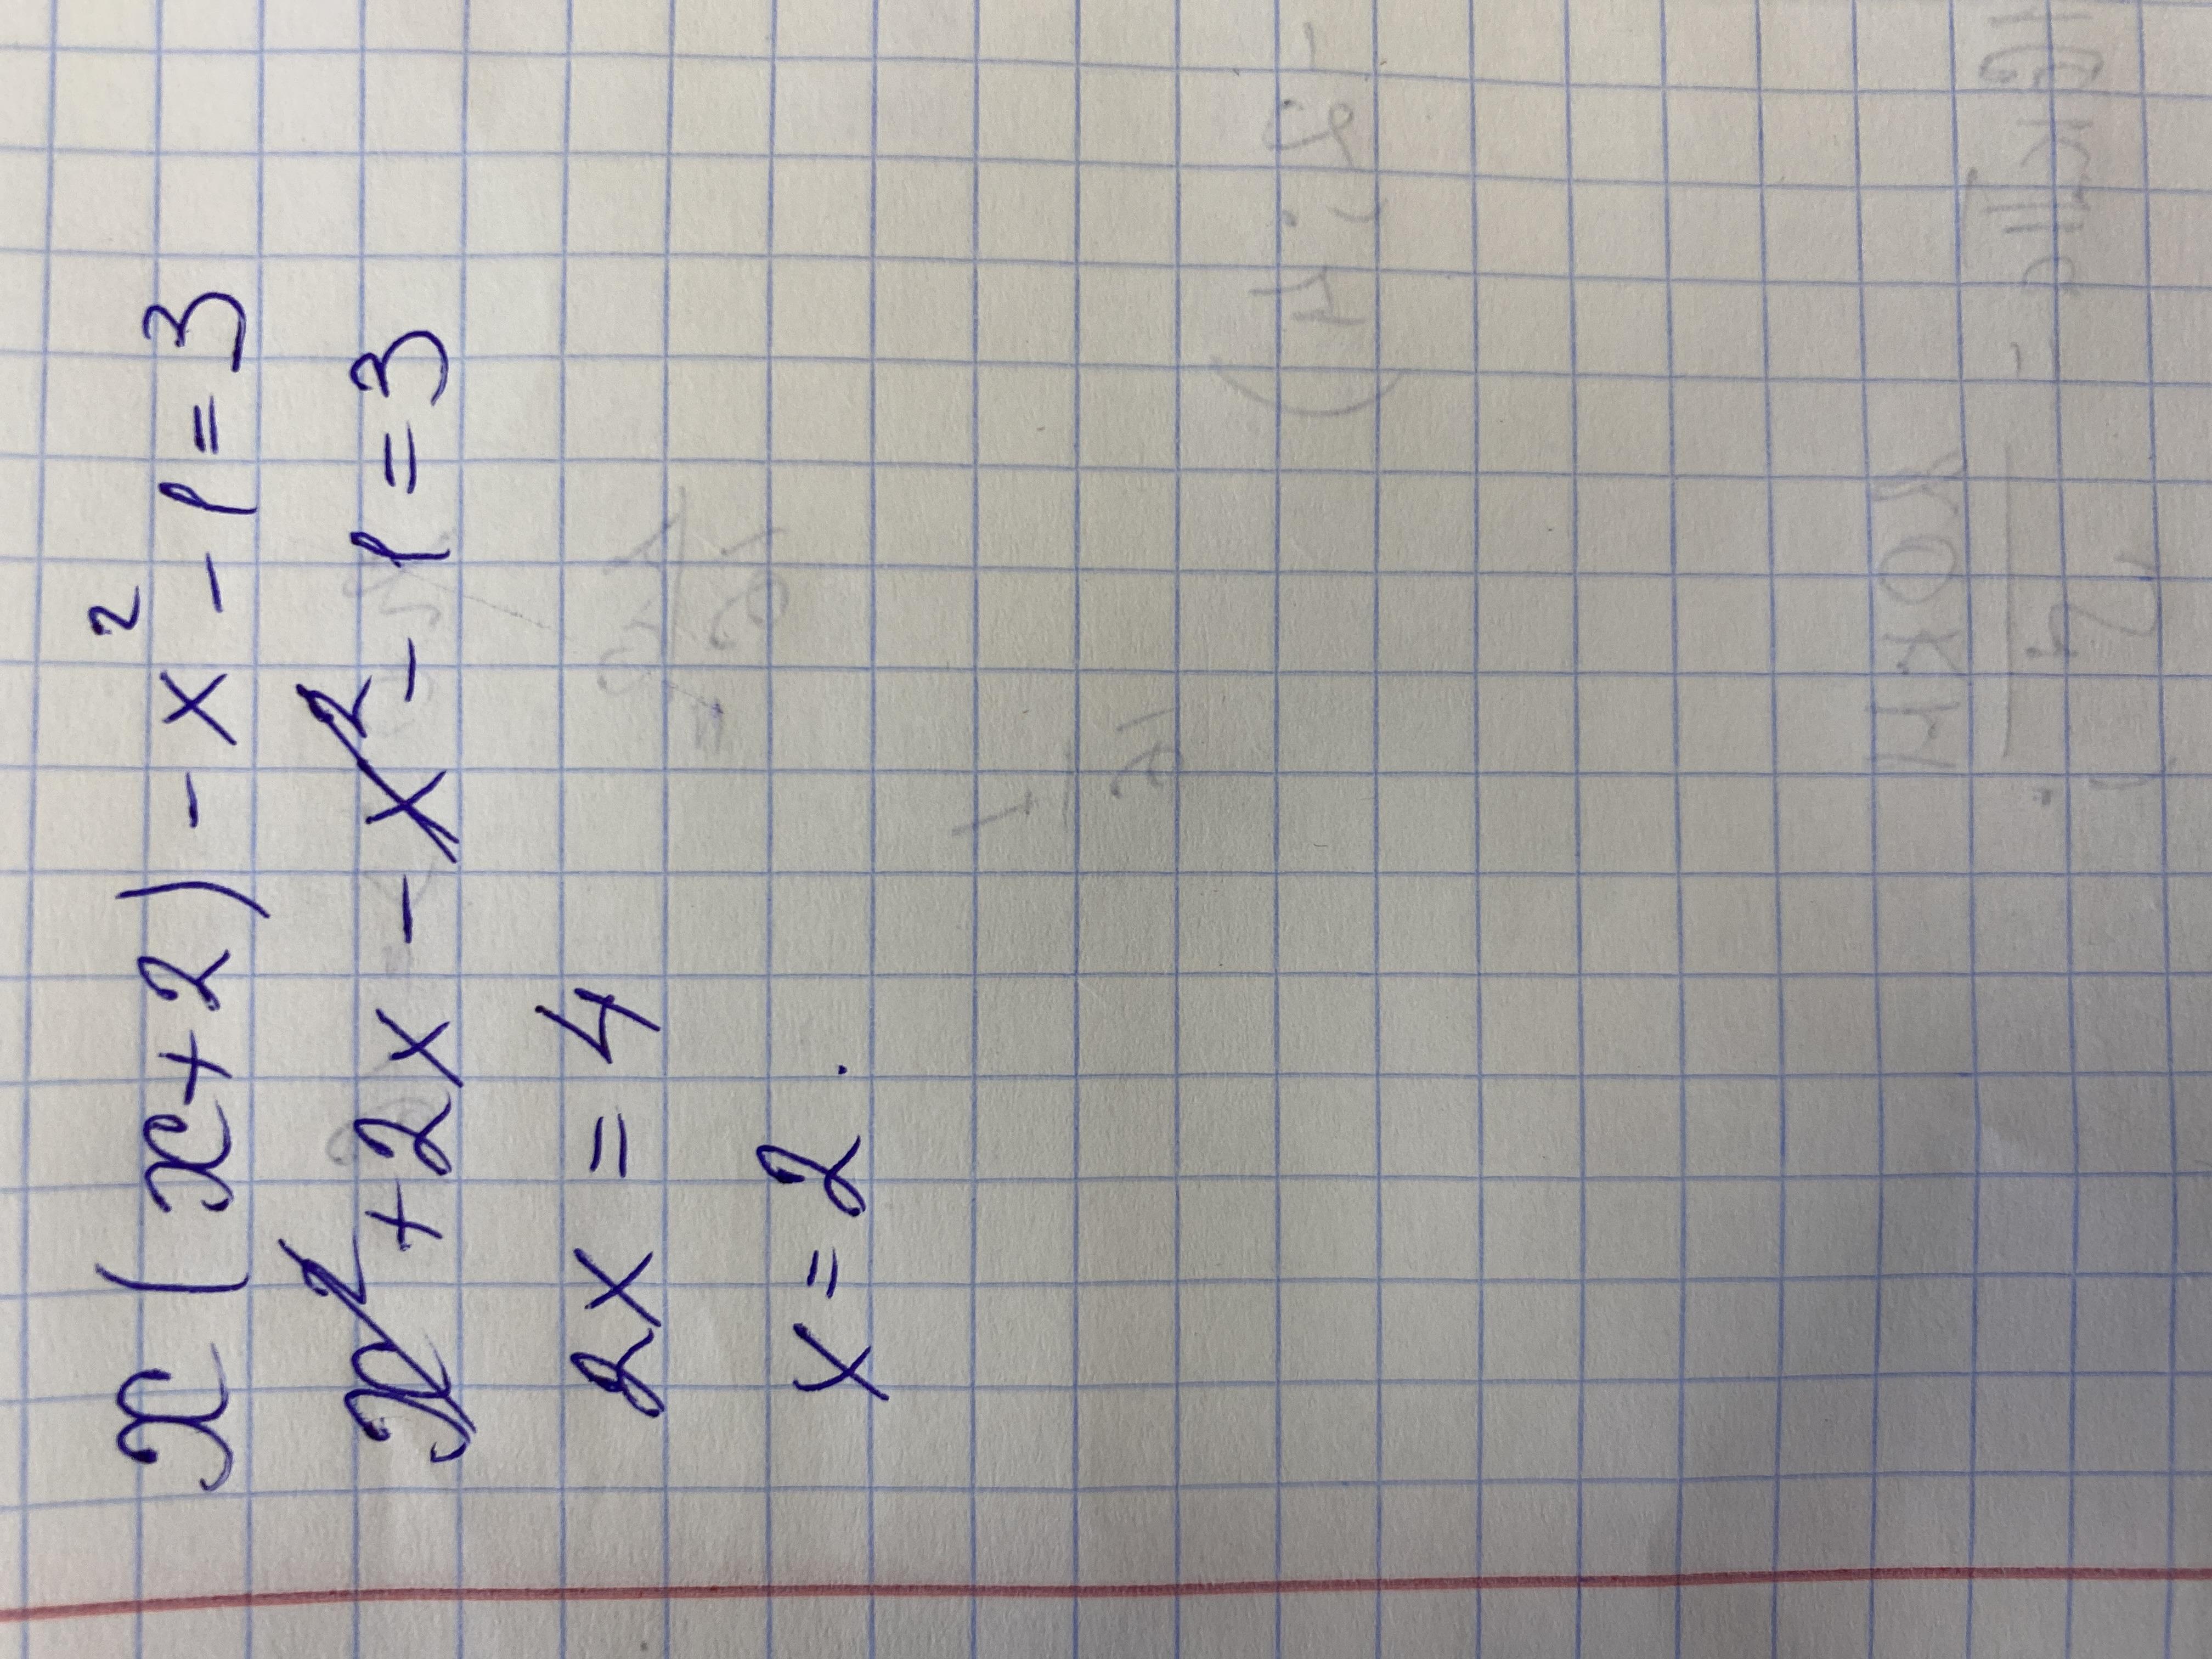 x(x+2)-x²-1=3
x²+2x-x²-1=3
2x=4
x=2.